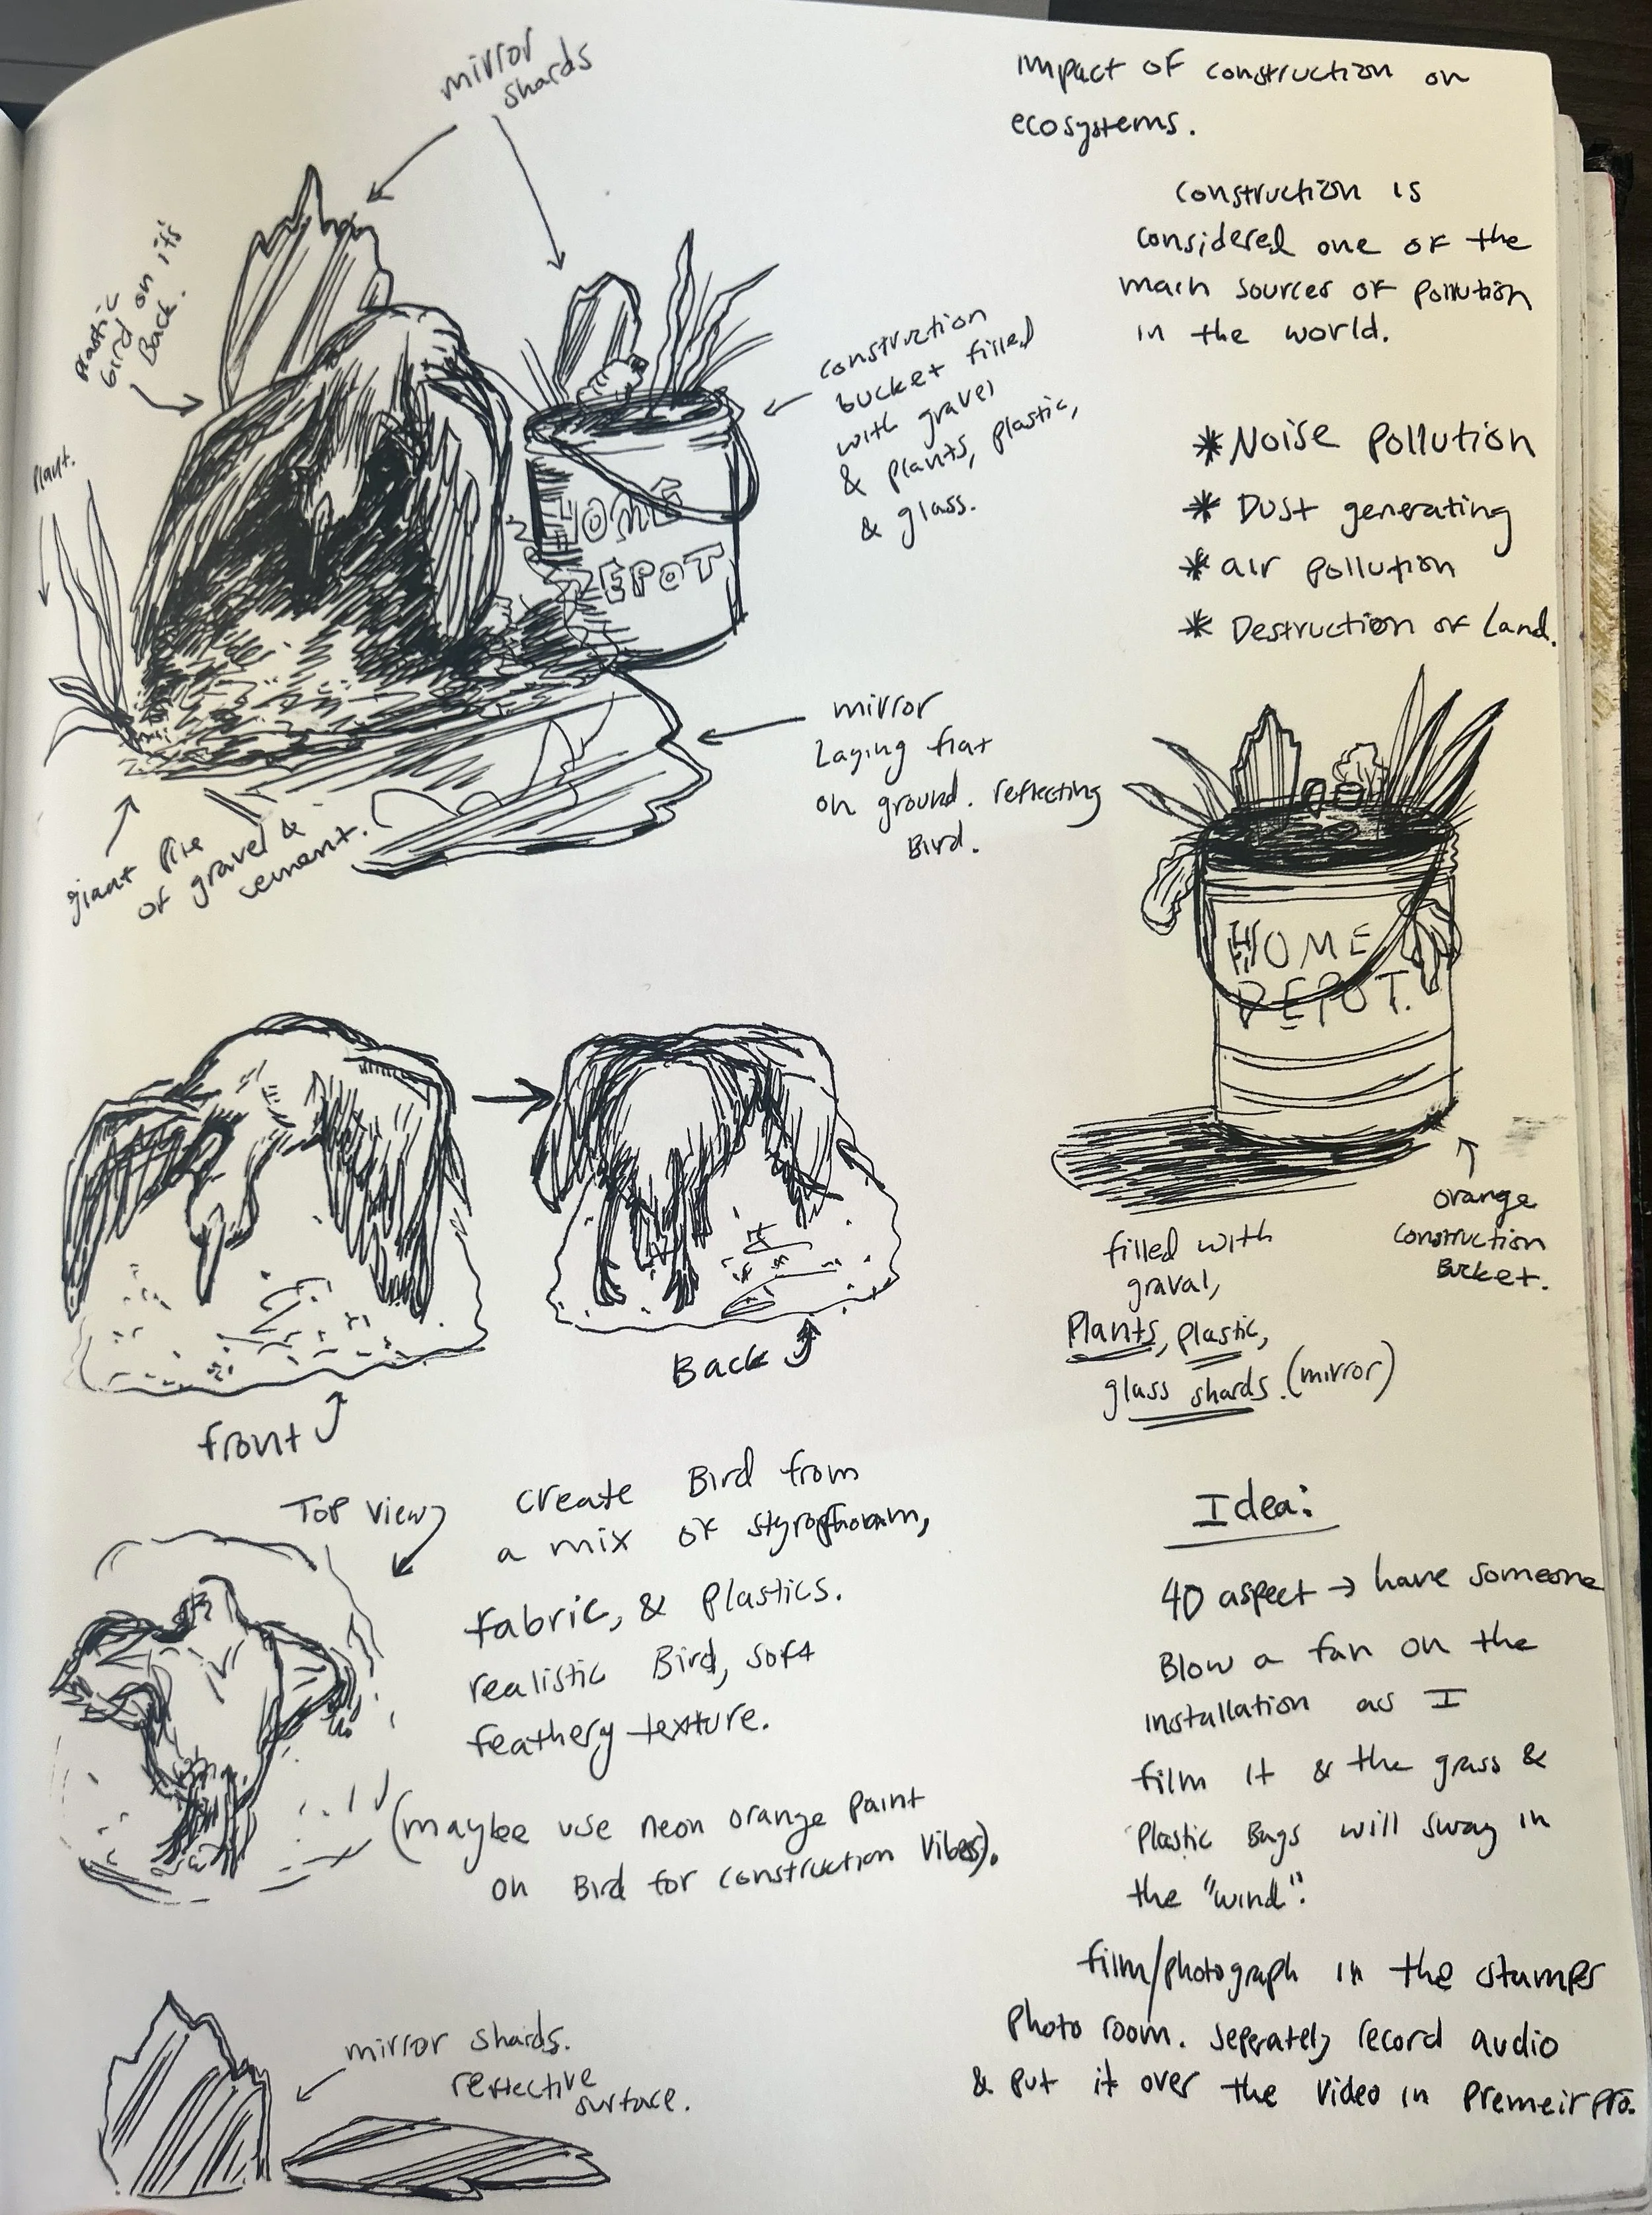 mirror
shards
impact of construction on
ecosystems.
construction is
considered one of the
main sources of pollution
in the world.
* Noise pollution
* Dust generating
* air pollution
* Destruction of Land.
plastic
bird on it's
Back.
plant.
construction
bucket filled
with gravel
& plants, plastic,
& glass.
HOME
DEPOT
mirror
Laying flat
on ground. reflecting
Bird.
giant pile
of gravel &
cement.
HOME
DEPOT.
orange
construction
Bucket.
filled with
graval,
Plants, plastic,
glass shards. (mirror)
Back
front
Top view
create Bird from
a mix of styrophoam,
fabric, & plastics.
realistic Bird, soft
feathery texture.
(maybee use neon orange paint
on Bird for construction vibes).
Idea:
4D aspect → have someone
Blow a fan on the
installation as I
film it & the grass &
Plastic Bags will sway in
the "wind".
film/photograph in the stamps
photo room. seperately record audio
& put it over the video in Premeir pro.
mirror shards.
reflective
surface.